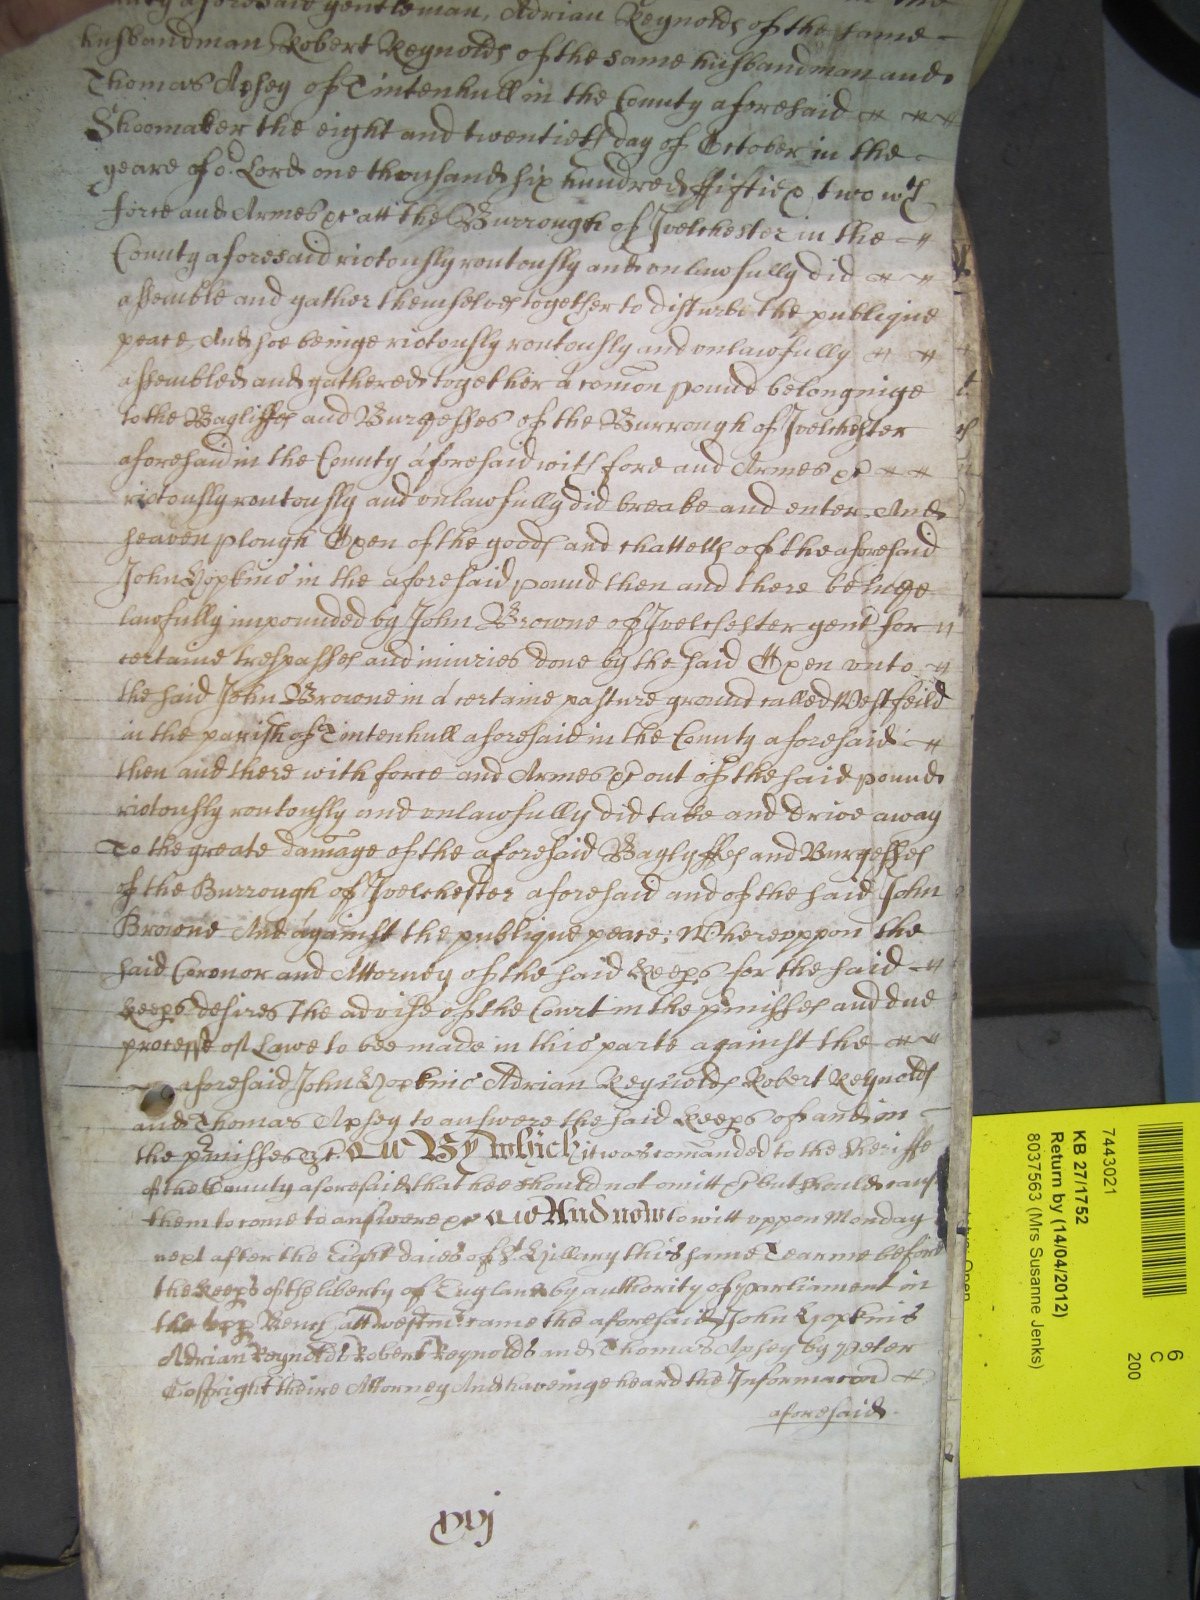 aforesaid gentleman, Adrian Reynolds of the same
husbandman Robert Reynolds of the same husbandman and
Thomas Apsey of Tintenhull in the County aforesaid
Shoomaker the eight and twentieth day of October in the
yeare of o. Lord one thousand six hundred ffiftie & two wth
force and Armes &c att the Burrough of Ivelchester in the
County aforesaid riotously routously and unlawfully did
assemble and gather themselves together to disturbe the publique
peace, And soe beinge riotously routously and unlawfully
assembled and gathered together a comon pound belonginge
to the Bayliffes and Burgesses of the Burrough of Ivelchester
aforesaid in the County aforesaid with force and Armes &c
riotously routously and unlawfully did breake and enter And
seaven plough Oxen of the goods and chattells of the aforesaid
John Hopkins in the aforesaid pound then and there beinge
lawfully impounded by John Browne of Ivelchester gent for
certaine trespasses and iniuries done by the said Oxen unto
the said John Browne in a certaine pasture ground called Westfeild
in the parish of Tintenhull aforesaid in the County aforesaid
then and there with force and Armes &c out of the said pound
riotously routously and unlawfully did take and drive away
To the greate damage of the aforesaid Baylyffes and Burgesses
of the Burrough of Ivelchester aforesaid and of the said John
Browne And against the publique peace; Whereuppon the
said Coronor and Attorney of the said Keeps for the said
Keeps desires the advise of the Court in the pmisses and due
processe of Lawe to bee made in this parte against the
aforesaid John Hopkins Adrian Reynolds Robert Reynolds
and Thomas Apsey to answere the said Keeps of and in
the pmisses &c. By which it was comanded to the Sheriffe
of the County aforesaid that hee should not omitt &c but should cause
them to come to answere &c And now to witt uppon Monday
next after the Eight daies of St. Hillary this same Tearme before
the Keeps of the liberty of England by authority of parliament in
the upp Bench att Westmr came the aforesaid John Hopkins
Adrian Reynolds Robert Reynolds and Thomas Apsey by Peter
theire Attorney And haveinge heard the Informacon
aforesaid
xvj
7443021
KB 27/1752
Return by (14/04/2012)
8037563 (Mrs Susanne Jenks)
6
C
200